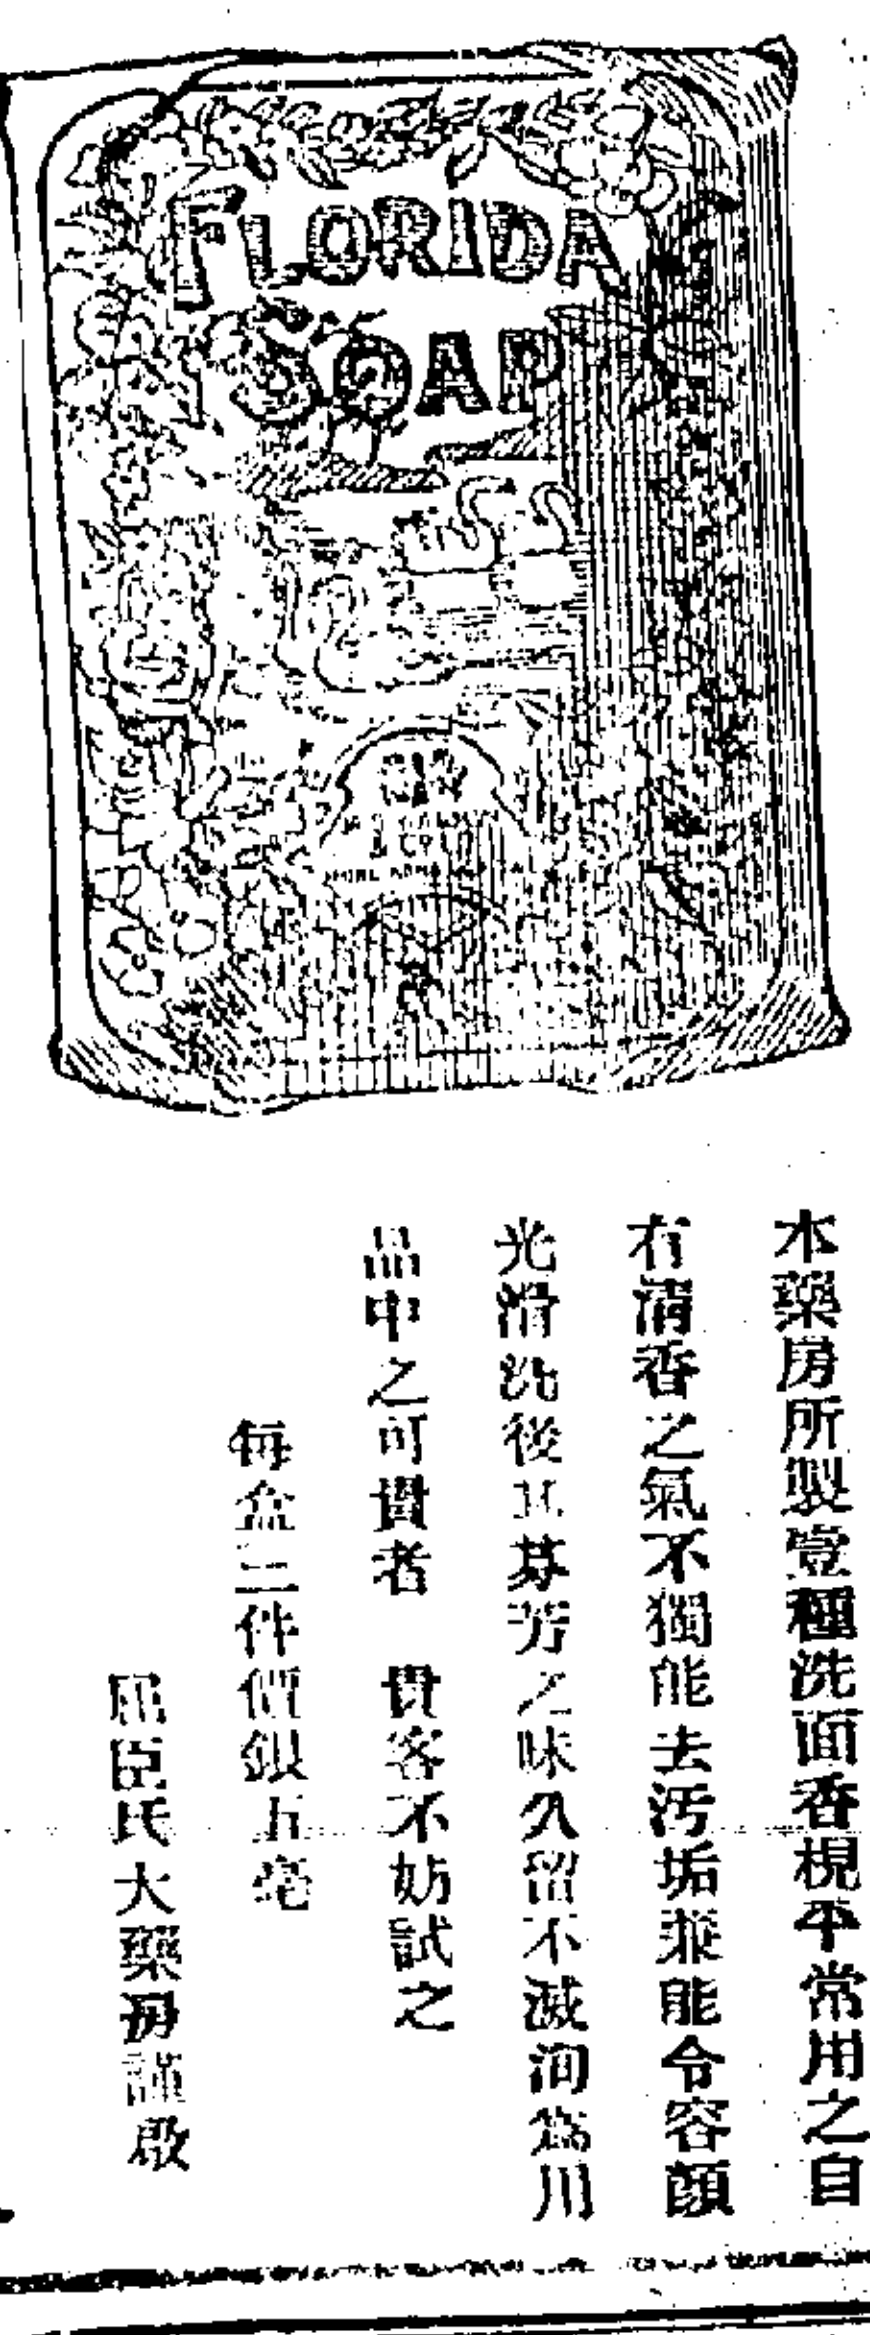 FLORIDA
SOAP
& CO LD
HONG KONG
本藥房所製壹種洗面香梘平常用之自
有清香之氣不獨能去污垢兼能令容顏
光滑洗後其芬芳之味久留不滅洵為用
品中之可貴者 貴客不妨試之
每盒三件價銀五毫
屈臣氏大藥房謹啟